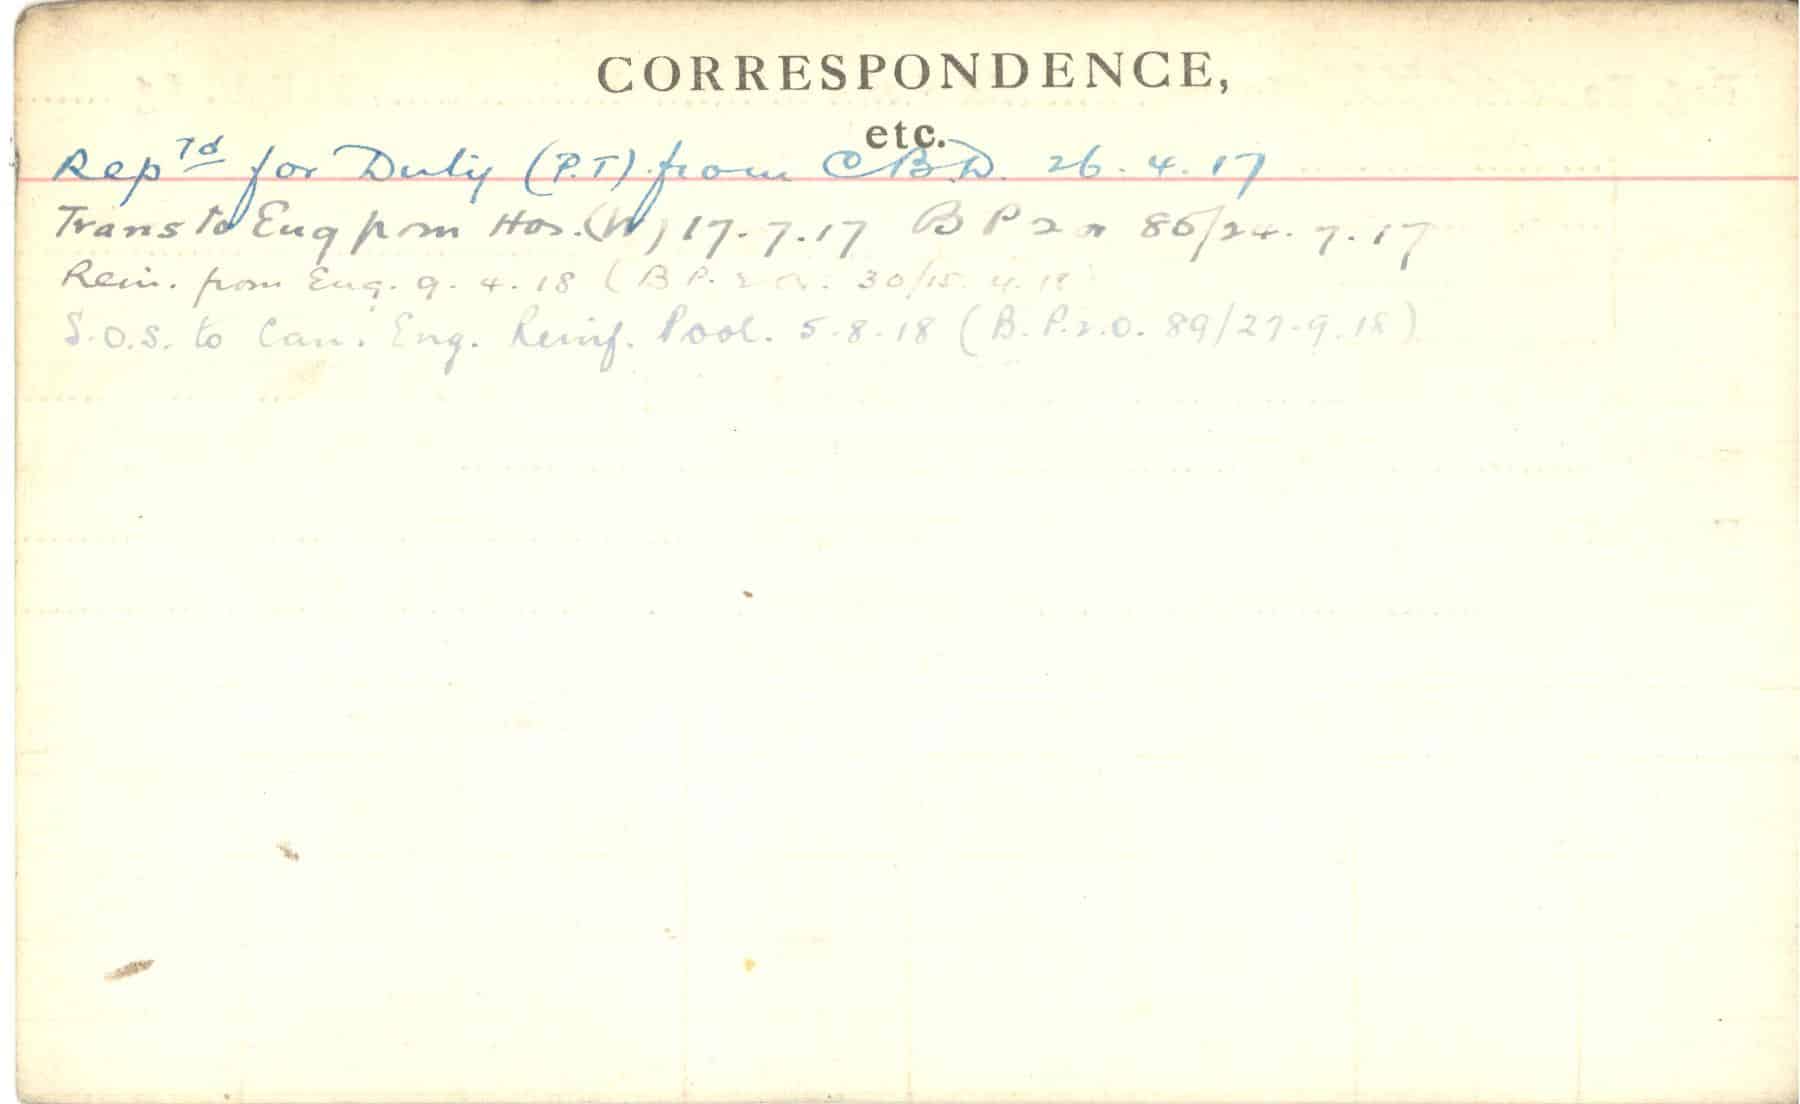 CORRESPONDENCE,
etc.
RepTd for Duty (P.T) from C.B.D. 26.4.17
Trans to Eng from Hos. (W) 17.7.17 B P 2 O 86/24.7.17
Rein. from Eng. 9.4.18 (B P. 2 O. 30/15.4.18)
S.O.S. to Can. Eng. Reinf. Pool. 5-8-18 (B.P.2.O. 89/27-9.18)